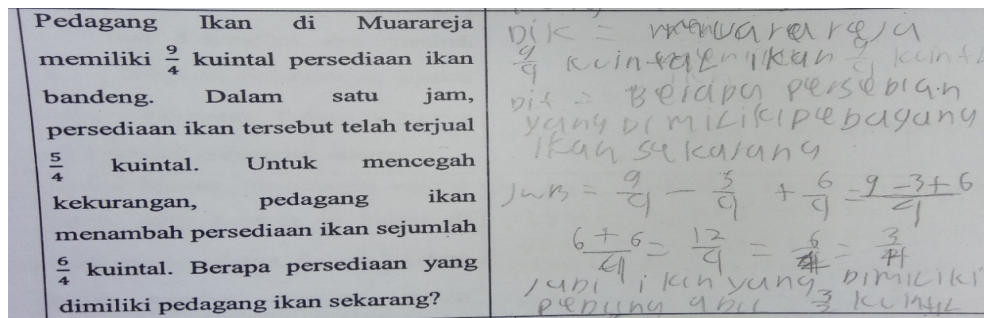 Pedagang Ikan di Muarareja
memiliki 9/4 kuintal persediaan ikan
bandeng. Dalam satu jam,
persediaan ikan tersebut telah terjual
5/4 kuintal. Untuk mencegah
kekurangan, pedagang ikan
menambah persediaan ikan sejumlah
6/4 kuintal. Berapa persediaan yang
dimiliki pedagang ikan sekarang?
Dik =
9/4 ikan kuint
Dit = Berapa persedian
yang DimiLiki
ikan sekarang
Jwb = 9/4 - 3/4 + 6/4 = 9-3+6/4
6+6/4 = 12/4 = 6/4 = 3/4
Jadi ikan yang DimiLiki